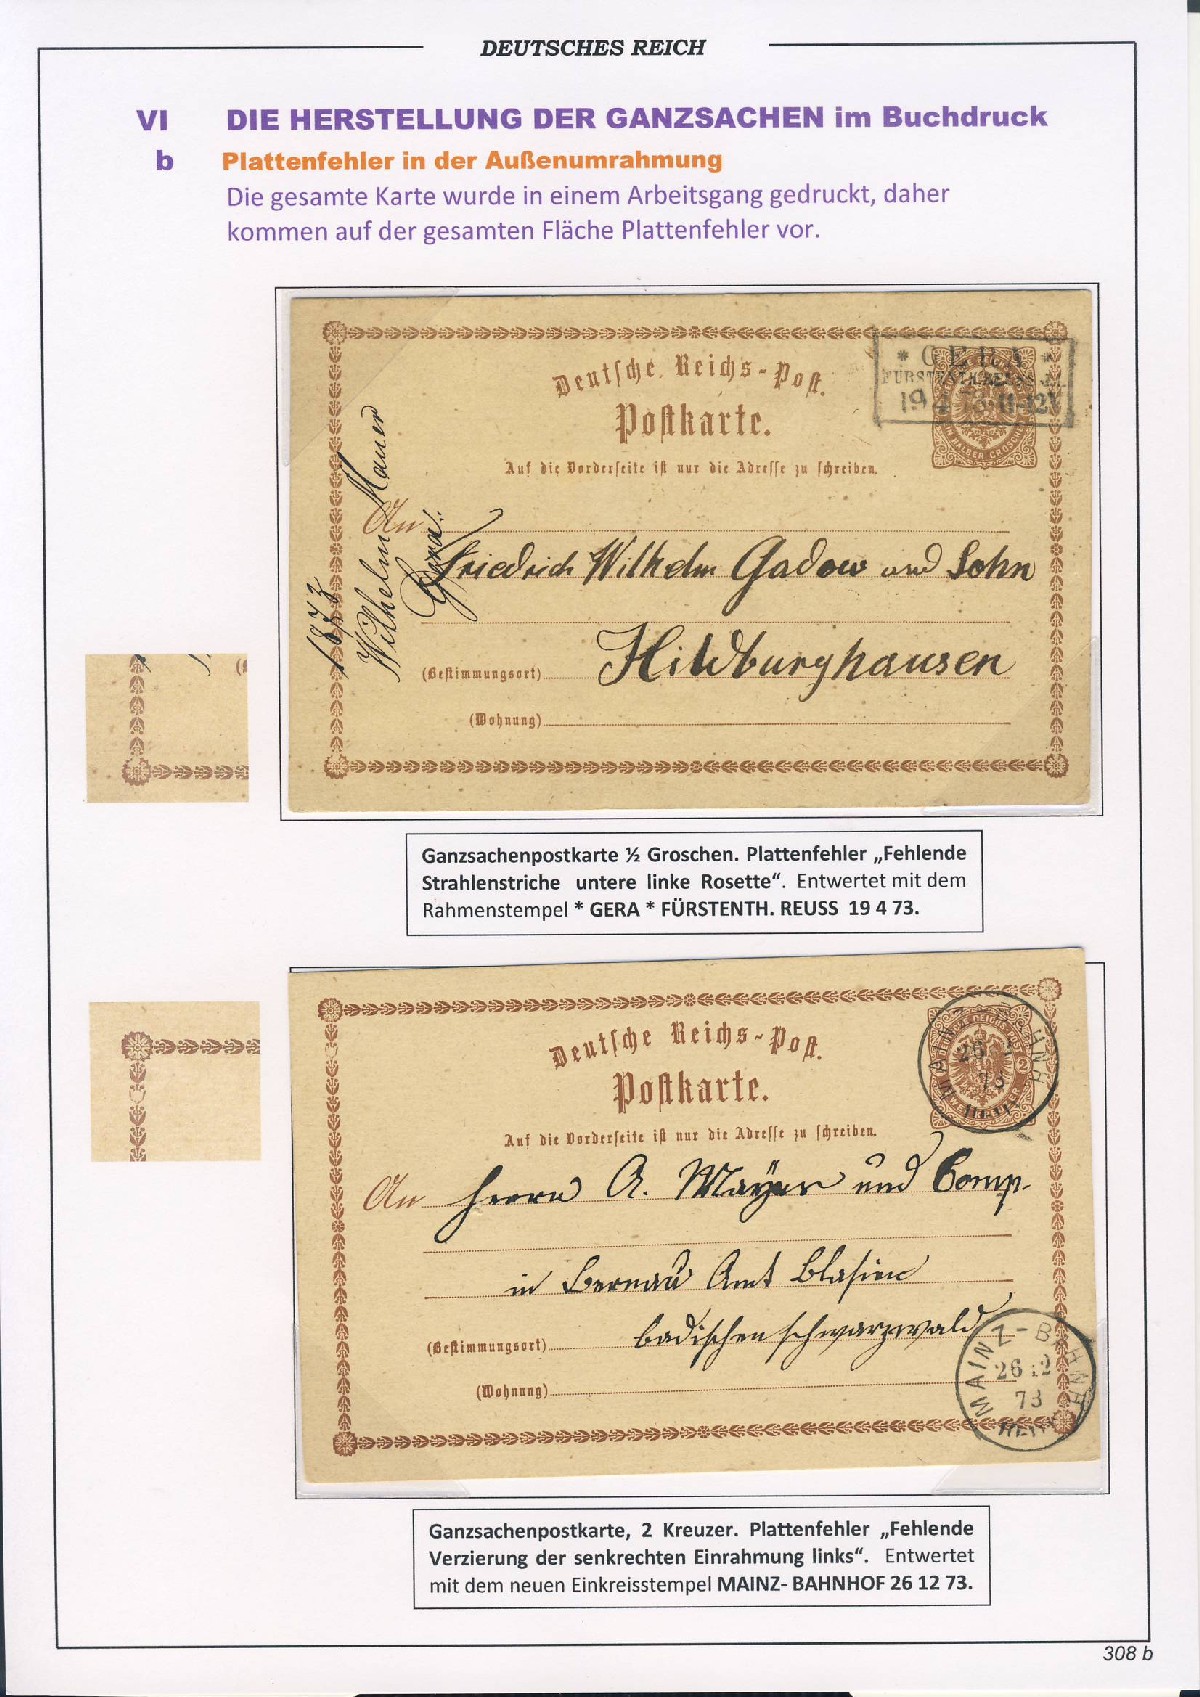 DEUTSCHES REICH
VI DIE HERSTELLUNG DER GANZSACHEN im Buchdruck
b Plattenfehler in der Außenumrahmung
Die gesamte Karte wurde in einem Arbeitsgang gedruckt, daher
kommen auf der gesamten Fläche Plattenfehler vor.
Deutsche Reichs-Post.
Postkarte.
Auf die Vorderseite ist nur die Adresse zu schreiben.
* GERA *
FÜRSTENTH. REUSS
19 4 73 11-12V
1873
Wilhelm Mauer
Gera.
An
Friedrich Wilhelm Gadow und Sohn
Hildburghausen
(Bestimmungsort)
(Wohnung)
Ganzsachenpostkarte ½ Groschen. Plattenfehler „Fehlende
Strahlenstriche untere linke Rosette“. Entwertet mit dem
Rahmenstempel * GERA * FÜRSTENTH. REUSS 19 4 73.
Deutsche Reichs-Post.
Postkarte.
Auf die Vorderseite ist nur die Adresse zu schreiben.
An Herrn A. Mayer und Comp.
in Bernau Amt Blasien
badischen schwarzwald
(Bestimmungsort)
(Wohnung)
MAINZ-BAHNH
26 12
73
Ganzsachenpostkarte, 2 Kreuzer. Plattenfehler „Fehlende
Verzierung der senkrechten Einrahmung links“. Entwertet
mit dem neuen Einkreisstempel MAINZ- BAHNHOF 26 12 73.
308 b